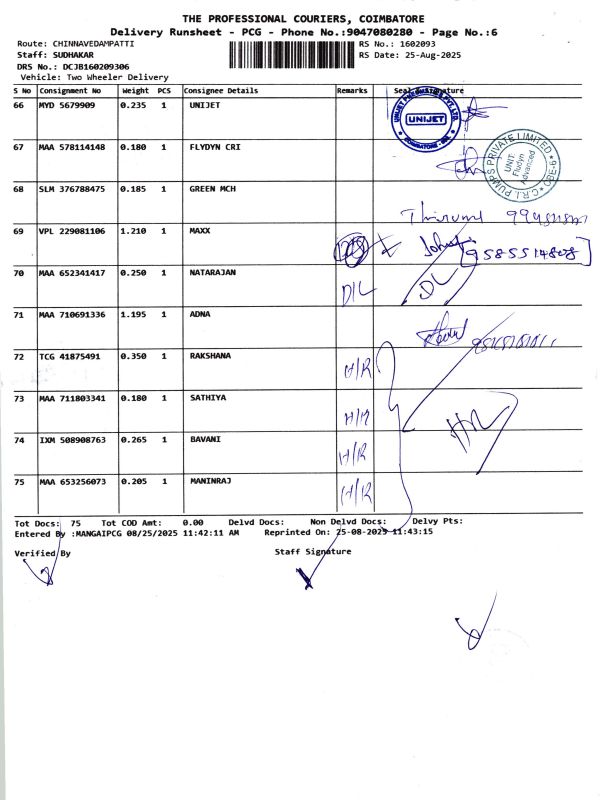 THE PROFESSIONAL COURIERS, COIMBATORE
Delivery Runsheet - PCG - Phone No.:9047080280 - Page No.:6
Route: CHINNAVEDAMPATTI
RS No.: 1602093
Staff: SUDHAKAR
RS Date: 25-Aug-2025
DRS No.: DCJB160209306
Vehicle: Two Wheeler Delivery
S No Consignment No Weight PCS Consignee Details Remarks Seal Signature
66 MYD 5679909 0.235 1 UNIJET
UNIJET PNEUMATICS PVT. LTD.
UNIJET
67 MAA 578114148 0.180 1 FLYDYN CRI
C.R.I. PUMPS PRIVATE LIMITED
UNIT:
Fludyn
Advanced
CBE-6
68 SLM 376788475 0.185 1 GREEN MCH
69 VPL 229081106 1.210 1 MAXX
9585514808
70 MAA 652341417 0.250 1 NATARAJAN
D/L
DL
71 MAA 710691336 1.195 1 ADNA
72 TCG 41875491 0.350 1 RAKSHANA
H/R
73 MAA 711803341 0.180 1 SATHIYA
H/R
74 IXM 508908763 0.265 1 BAVANI
H/R
75 MAA 653256073 0.205 1 MANINRAJ
H/R
Tot Docs: 75 Tot COD Amt: 0.00 Delvd Docs: Non Delvd Docs: Delvy Pts:
Entered By :MANGAIPCG 08/25/2025 11:42:11 AM Reprinted On: 25-08-2025 11:43:15
Verified By Staff Signature